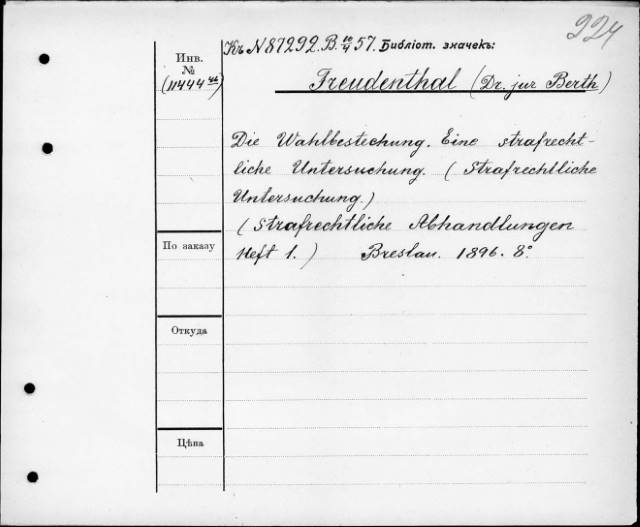 224
Къ N 87292. В. 10/4 57. Библіот. значекъ:
Инв.
№
(11444 46)
Freudenthal (Dr. jur Berth)
Die Wahlbestechung. Eine strafrecht-
liche Untersuchung. (Strafrechtliche
Untersuchung.)
(Strafrechtliche Abhandlungen
Heft 1.) Breslau. 1896. 8°
По заказу
Откуда
Цѣна